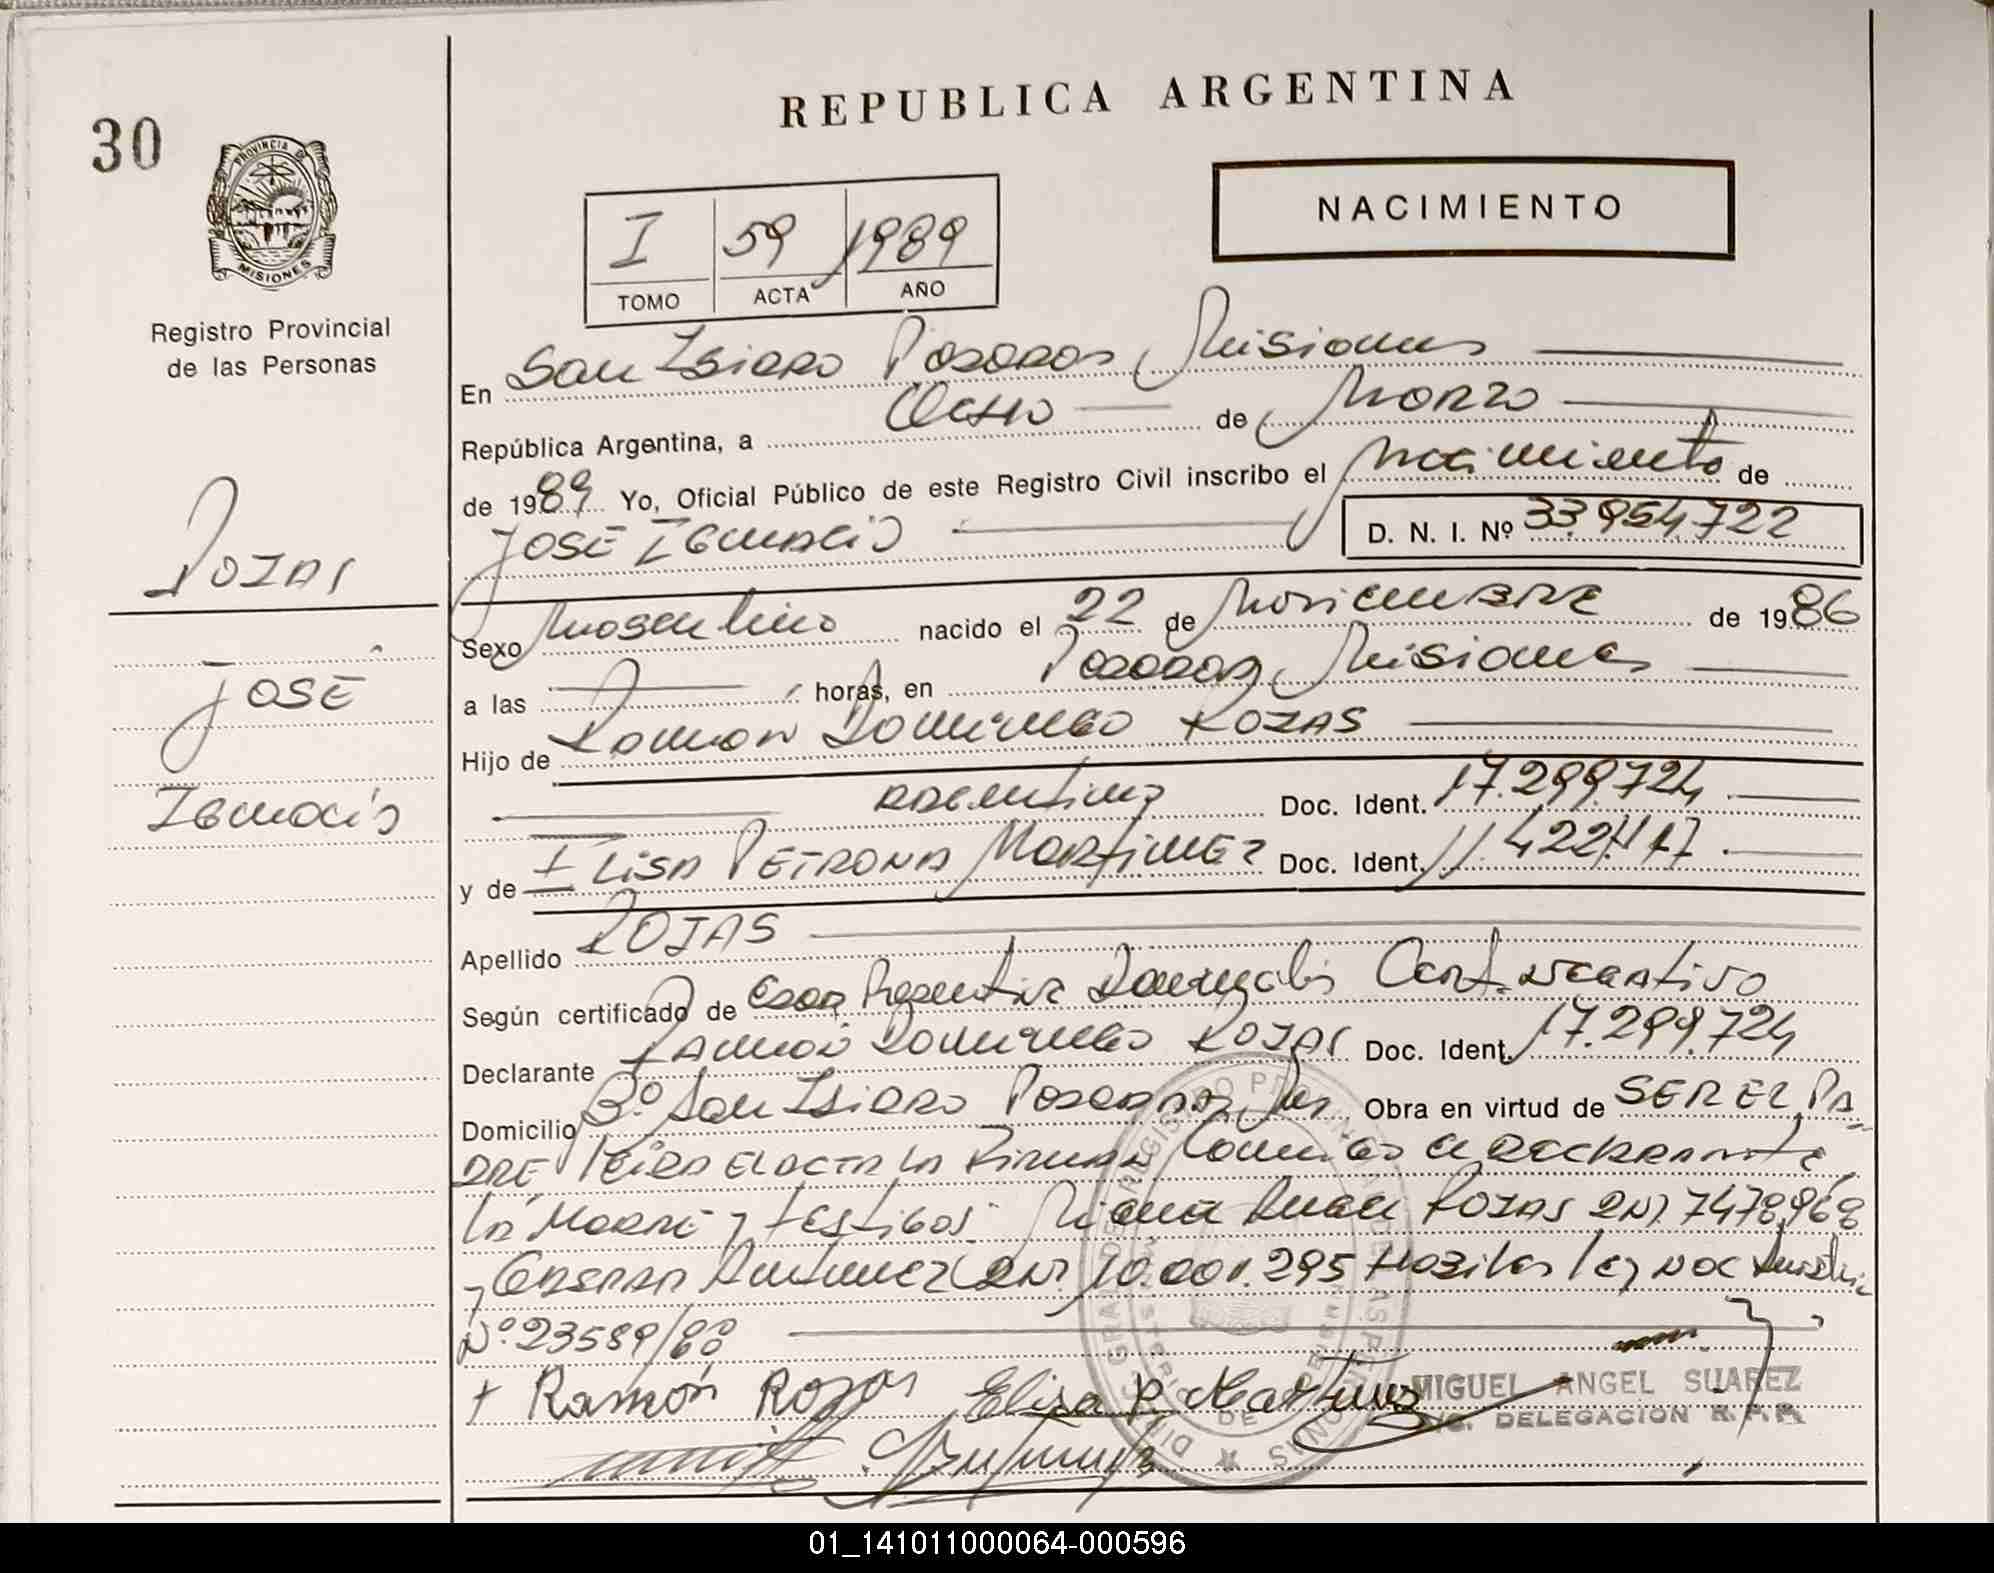 REPUBLICA ARGENTINA
30
NACIMIENTO
PROVINCIA D
MISIONES
I 59 1989
TOMO ACTA AÑO
Registro Provincial
de las Personas
En San Isidro Posadas, Misiones
República Argentina, a Ocho de Marzo
de 1989 Yo, Oficial Público de este Registro Civil inscribo el Nacimiento de
JOSE Ignacio D. N. I. Nº 33.954.722
ROJAS
JOSÉ
Ignacio
Sexo Masculino nacido el 22 de Noviembre de 1986
a las horas, en Posadas, Misiones
Hijo de Ramon Domingo ROJAS
argentino Doc. Ident. 17.299.724
y de Elisa PETRONA Martinez Doc. Ident. 11.422.117
Apellido ROJAS
Según certificado de
Declarante Ramon Domingo ROJAS Doc. Ident. 17.299.724
Domicilio Bº San Isidro Posadas, Mnes Obra en virtud de SER EL PA
DRE el acta la firman conmigo el declarante
la Madre y testigos: ROJAS DNI 7478.968
y DNI 10.001.295
Nº 23589/88
+ Ramón Rojas Elisa P. Martinez
MIGUEL ANGEL SUAREZ
DELEGACION R. P. P.
01_141011000064-000596